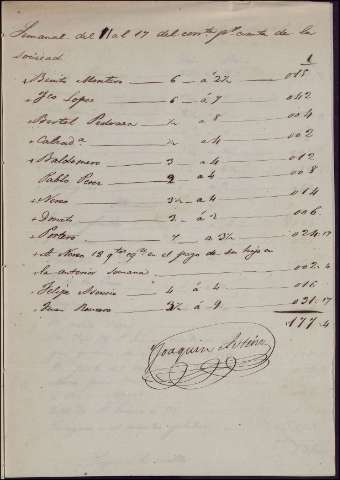 Semanal del 11 al 17 del corrte pr cuenta de la
sociedad
1
Benito Montero 6 a 2½ 015
Fco Lopez 6 a 7 042
Bristol Pedraza ½ a 8 004
Calzada ½ a 4 002
Baldomero 3 a 4 012
Pablo Perez 2 a 4 008
Nores 3½ a 4 014
3 a 2 006
Portero 7 a 3½ 024.17
A Nores 18 qtos eqdos en el pago de su hijo en
la anterior semana 002.4
Felipe Asencio 4 á 4 016
Juan Romero 3½ á 9 031.17
177.4
Joaquin